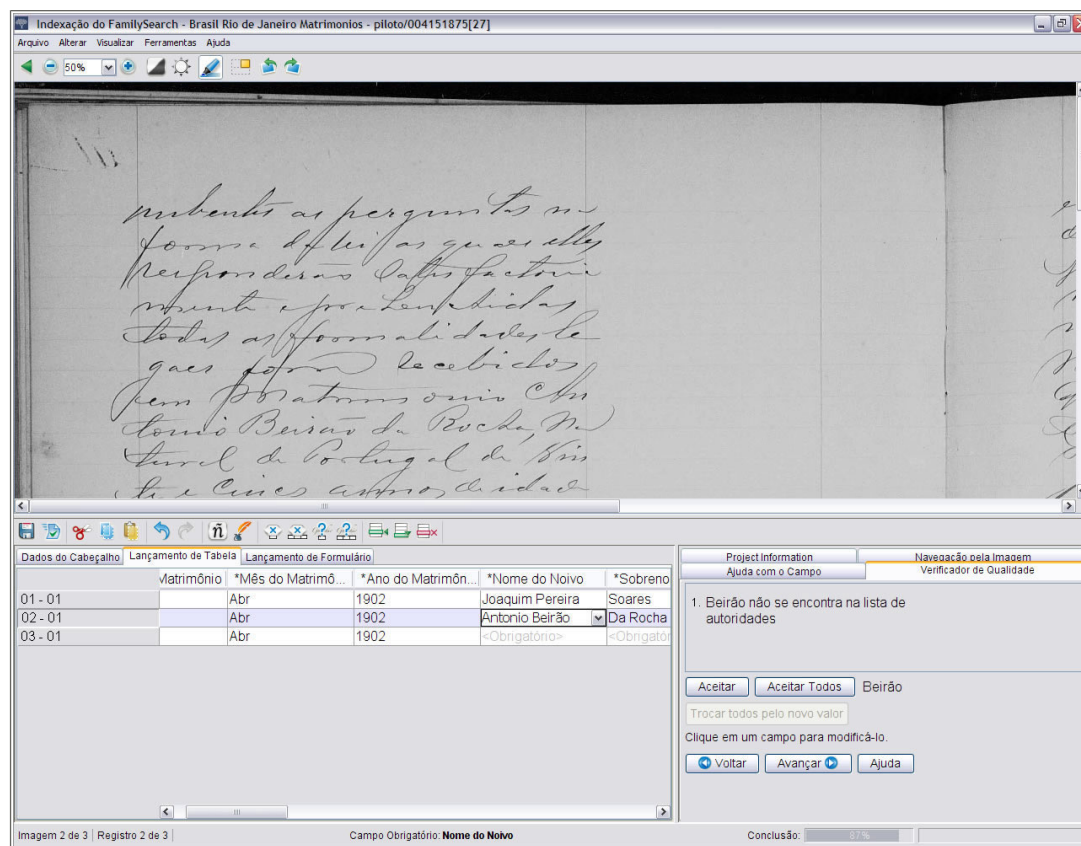 Indexação do FamilySearch - Brasil Rio de Janeiro Matrimonios - piloto/004151875[27]
Arquivo Alterar Visualizar Ferramentas Ajuda
50%
nubentes as perguntas na
forma da lei, as quaes elles
responderão
mente e
todas as formalidades le
gaes forão recebidos
em Matrimonio An
tonio Beirão da Rocha, Na
tural de Portugal de Vin
te e Cinco annos de idade
Dados do Cabeçalho Lançamento de Tabela Lançamento de Formulário
Matrimônio *Mês do Matrimô... *Ano do Matrimôn... *Nome do Noivo *Sobreno
01 - 01 Abr 1902 Joaquim Pereira Soares
02 - 01 Abr 1902 Antonio Beirão Da Rocha
03 - 01 Abr 1902 <Obrigatório> <Obrigatór
Project Information Navegação pela Imagem
Ajuda com o Campo Verificador de Qualidade
1. Beirão não se encontra na lista de
autoridades
Aceitar Aceitar Todos Beirão
Trocar todos pelo novo valor
Clique em um campo para modificá-lo.
Voltar Avançar Ajuda
Imagem 2 de 3 Registro 2 de 3 Campo Obrigatório: Nome do Noivo Conclusão: 87%